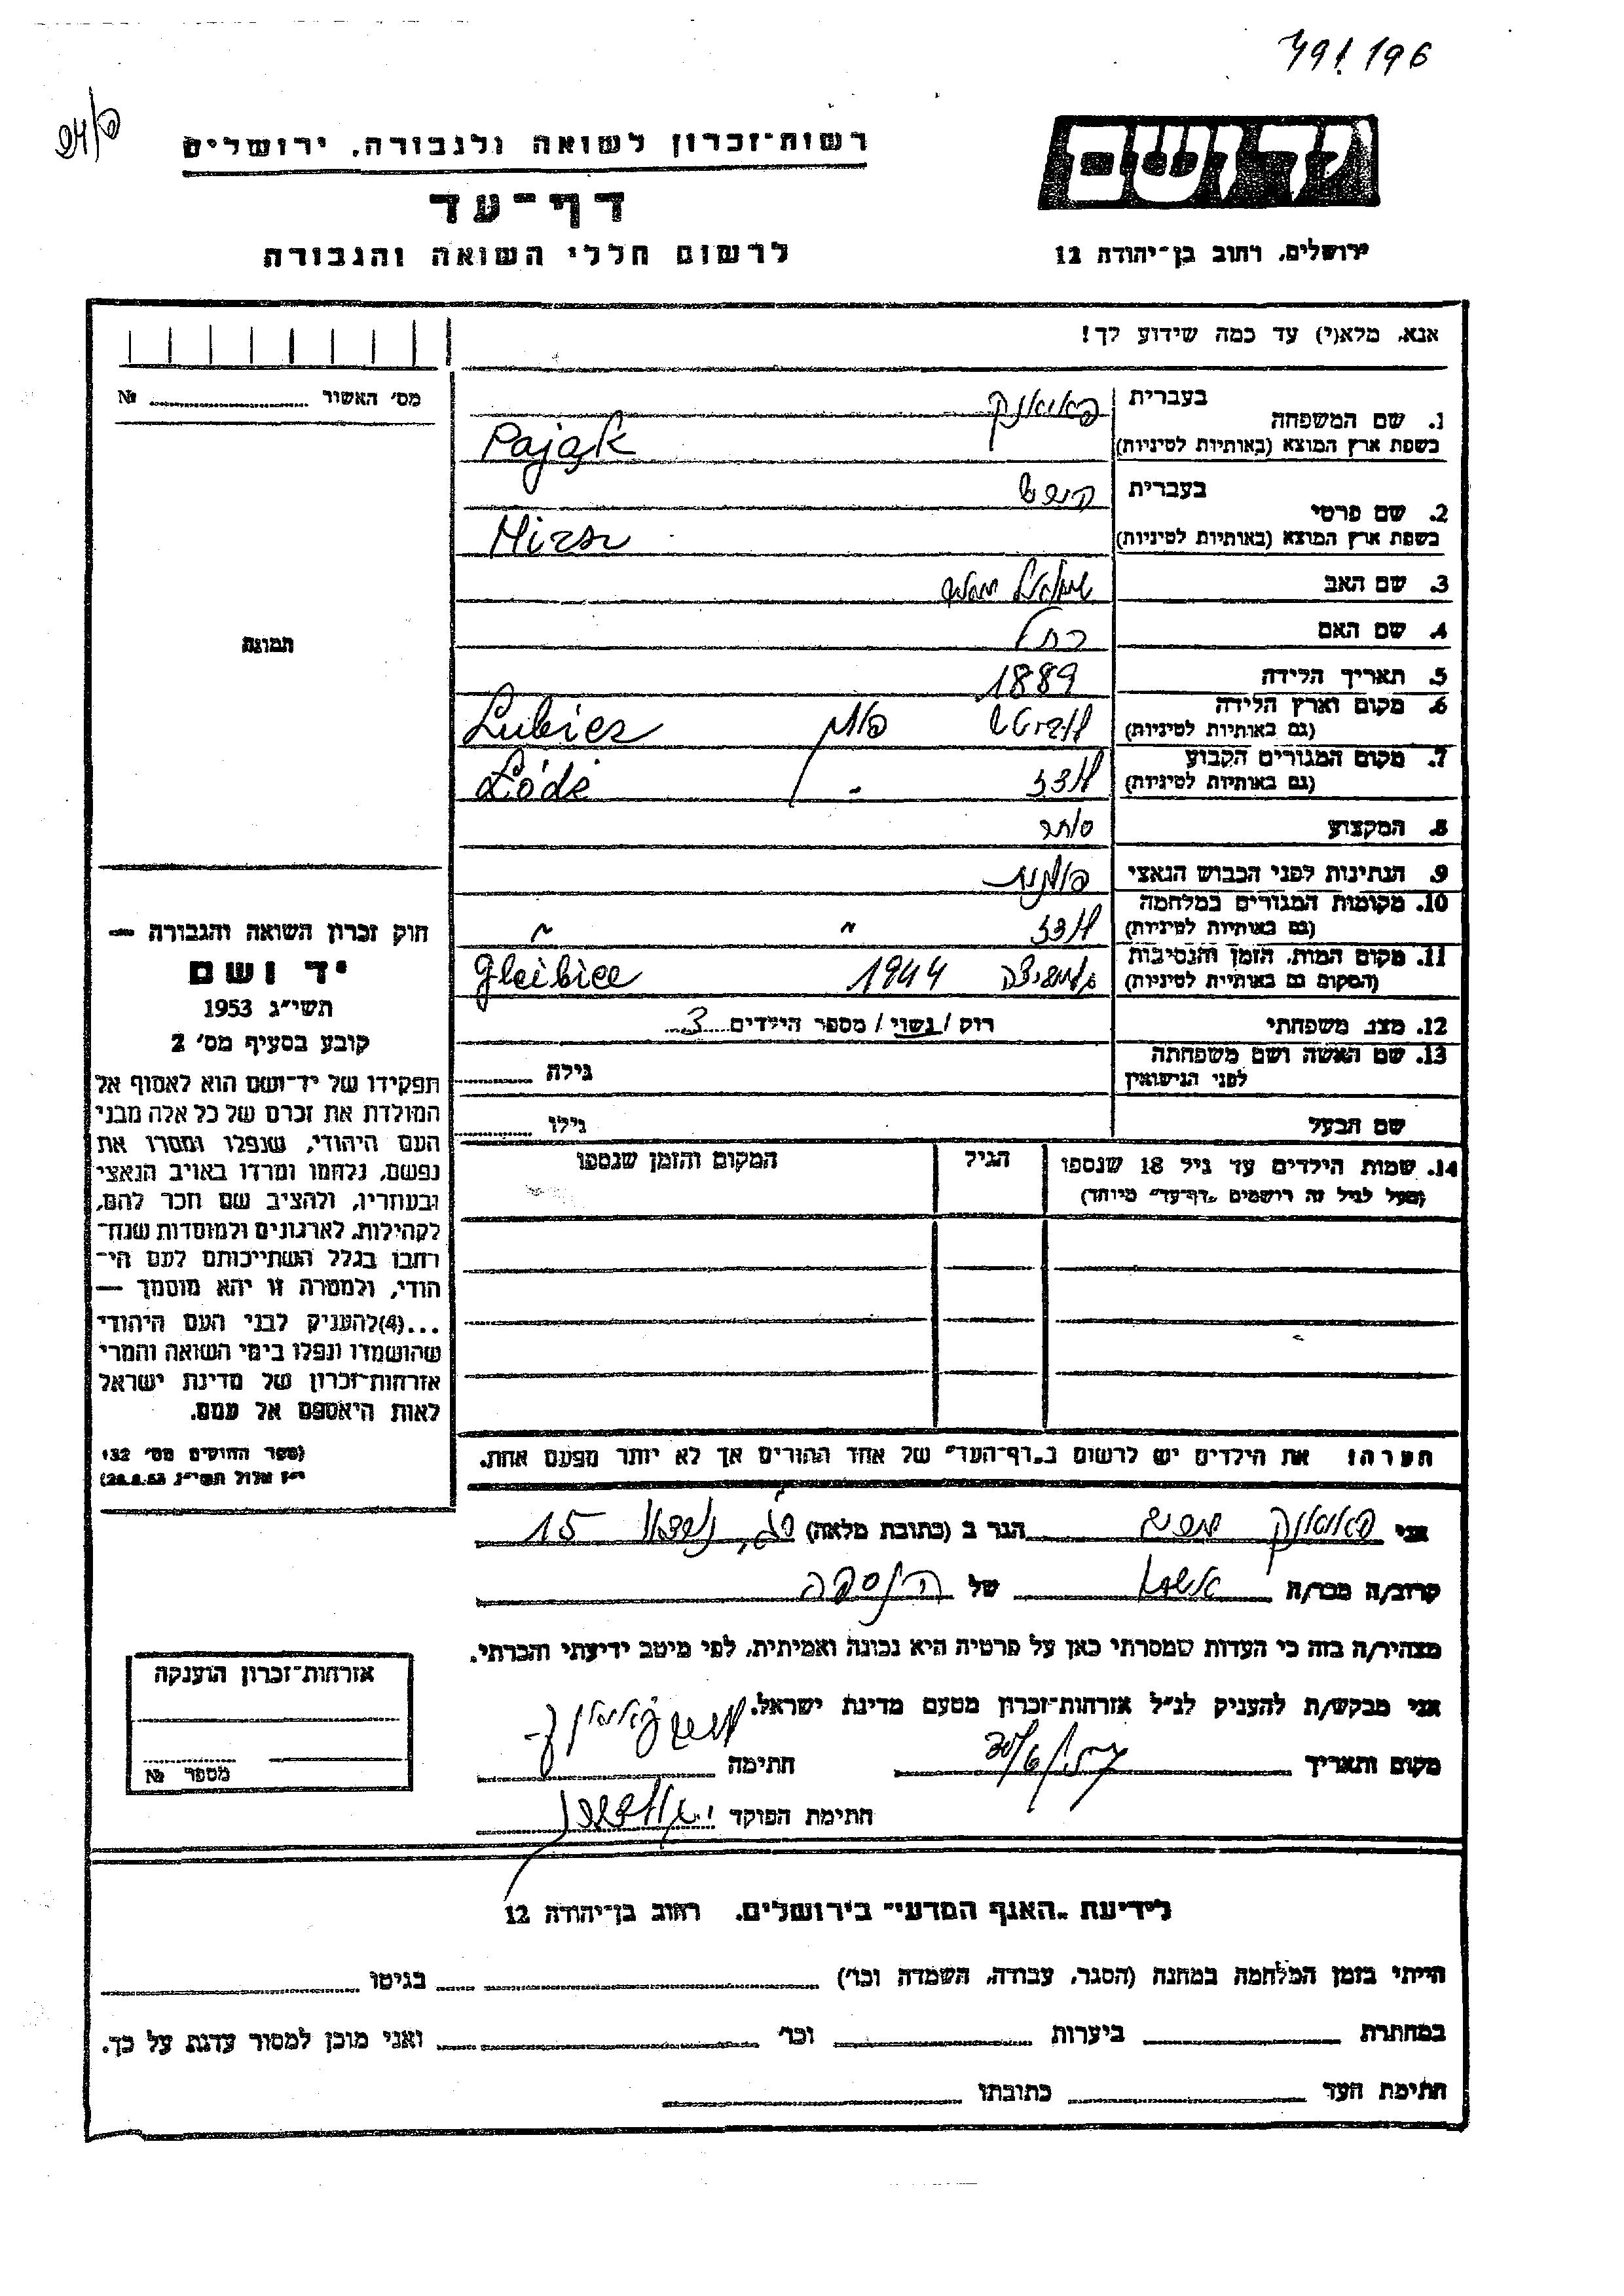 196
רשות־זכרון לשואה ולגבורה, ירושלים
דף־עד
לרשום חללי השואה והגבורה
יד ושם
ירושלים, רחוב בן־יהודה 12
אנא, מלא(י) עד כמה שידוע לך!
מס׳ האשור ........ №
1. שם המשפחה
בעברית
בשפת ארץ המוצא (באותיות לטיניות) Pająk
2. שם פרטי
בעברית הירש
בשפת ארץ המוצא (באותיות לטיניות) Hirsz
3. שם האב
4. שם האם רחל
5. תאריך הלידה 1889
6. מקום וארץ הלידה
(גם באותיות לטיניות) פולין Lubicz
7. מקום המגורים הקבוע
(גם באותיות לטיניות) לודז - Łódź
8. המקצוע סוחר
9. הנתינות לפני הכבוש הנאצי פולנית
10. מקומות המגורים במלחמה
(גם באותיות לטיניות) לודז " "
11. מקום המות, הזמן והנסיבות
(המקום גם באותיות לטיניות) 1944
12. מצב משפחתי רווק / נשוי / מספר הילדים 3
13. שם האשה ושם משפחתה
לפני הנישואין גילה
שם הבעל גילו
14. שמות הילדים עד גיל 18 שנספו
(מעל לגיל זה רושמים „דף־עד״ מיוחד)
הגיל
המקום והזמן שנספו
הערה: את הילדים יש לרשום ב„דף־העד״ של אחד ההורים אך לא יותר מפעם אחת.
תמונה
חוק זכרון השואה והגבורה —
יד ושם
תשי״ג 1953
קובע בסעיף מס׳ 2
תפקידו של יד־ושם הוא לאסוף אל
המולדת את זכרם של כל אלה מבני
העם היהודי, שנפלו ומסרו את
נפשם, נלחמו ומרדו באויב הנאצי
ובעוזריו, ולהציב שם וזכר להם,
לקהילות, לארגונים ולמוסדות שנח־
רבו בגלל השתייכותם לעם הי־
הודי, ולמטרה זו יהא מוסמך —
...(4)להעניק לבני העם היהודי
שהושמדו ונפלו בימי השואה והמרי
אזרחות־זכרון של מדינת ישראל
לאות היאספם אל עמם.
(ספר החוקים מס׳ 132
י״ז אלול תשי״ג 28.8.53)
אני הגר ב (כתובת מלאה) 15
קרוב/ה מכר/ה של הנספה
מצהיר/ה בזה כי העדות שמסרתי כאן על פרטיה היא נכונה ואמיתית, לפי מיטב ידיעתי והכרתי.
אני מבקש/ת להעניק לנ״ל אזרחות־זכרון מטעם מדינת ישראל.
מקום ותאריך 30/6/57 חתימה
חתימת הפוקד
אזרחות־זכרון הוענקה
מספר №
לידיעת „האגף המדעי״ בירושלים, רחוב בן־יהודה 12
הייתי בזמן המלחמה במחנה (הסגר, עבודה, השמדה וכו׳) בגיטו
במחתרת ביערות וכו׳ ואני מוכן למסור עדות על כך.
חתימת העד כתובתו